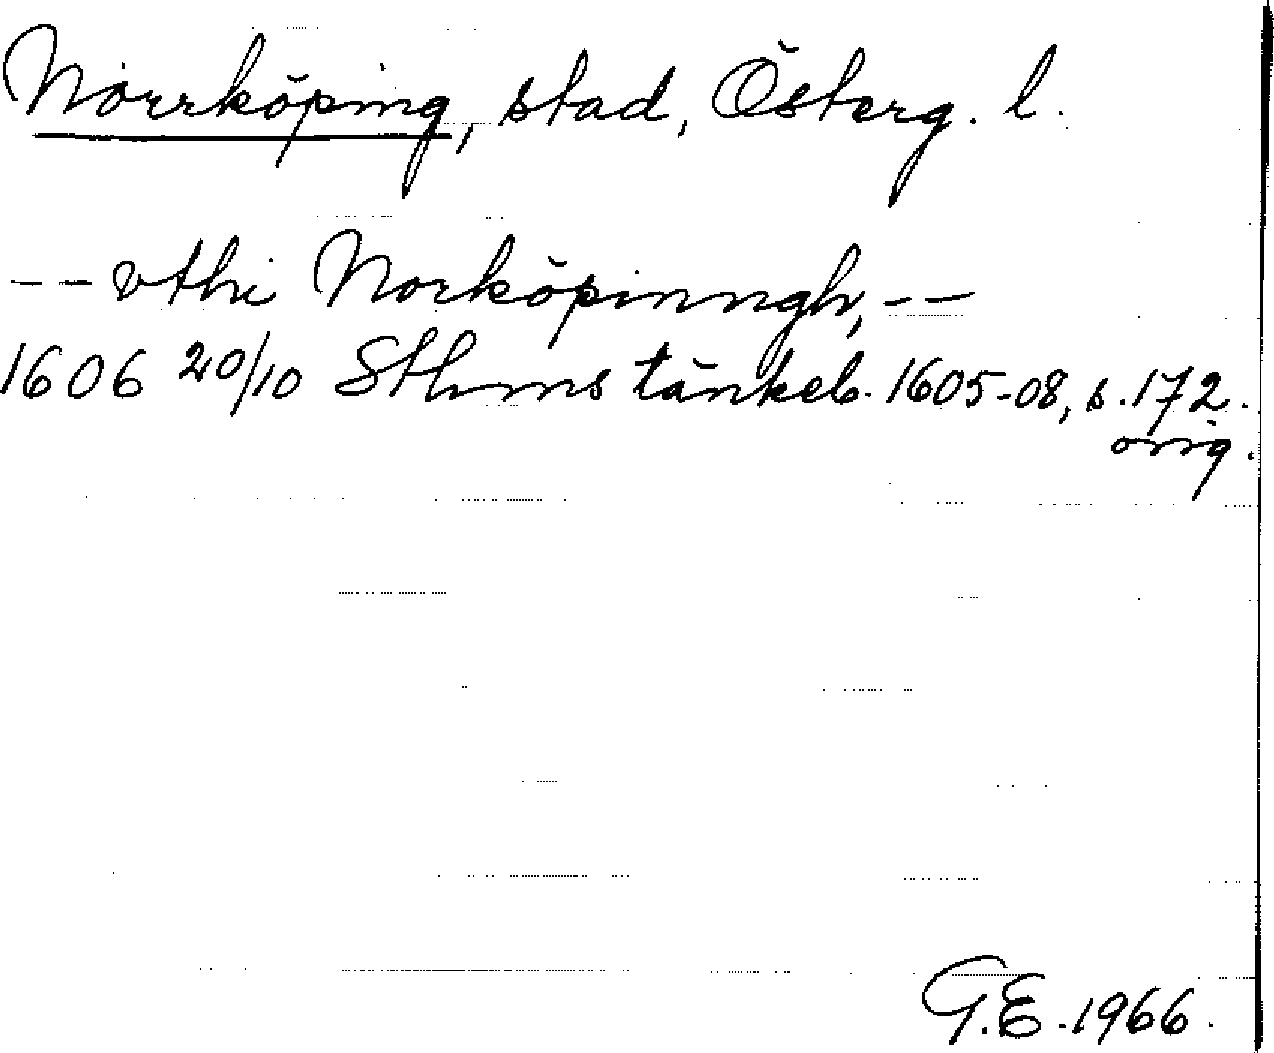 Norrköping, stad, Österg. l.
-- vthi Norköpinngh, --
1606 20/10 Sthms tänkeb. 1605-08, s. 172.
orig.
G.E. 1966.